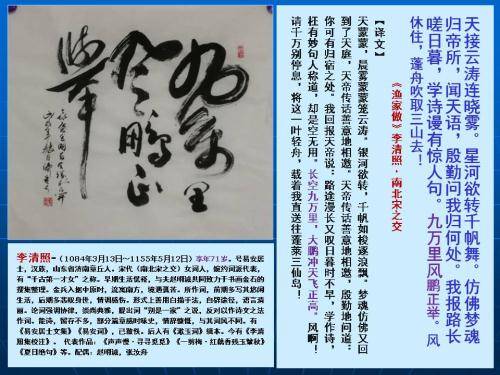 天接云涛连晓雾。星河欲转千帆舞。仿佛梦魂
归帝所，闻天语，殷勤问我归何处。我报路长
嗟日暮，学诗谩有惊人句。九万里风鹏正举。风
休住，蓬舟吹取三山去！
《渔家傲》李清照·南北宋之交
【译文】
天蒙蒙，晨雾蒙蒙笼云涛。银河欲转，千帆如梭逐浪飘。梦魂仿佛又回
到了天庭，天帝传话善意地相邀。天帝传话善意地相邀，殷勤地问道：
你可有归宿之处。我回报天帝说：路途漫长又叹日暮时不早。学作诗，
枉有妙句人称道，却是空无用。长空九万里，大鹏冲天飞正高。风啊！
请千万别停息，将这一叶轻舟，载着我直送往蓬莱三仙岛！
九万里
风鹏正
举
李清照-（1084年3月13日～1155年5月12日）享年71岁。号易安居
士，汉族，山东省济南章丘人。宋代（南北宋之交）女词人，婉约词派代表，
有“千古第一才女”之称。早期生活优裕，与夫赵明诚共同致力于书画金石的
搜集整理。金兵入据中原时，流寓南方，境遇孤苦。所作词，前期多写其悠闲
生活，后期多悲叹身世，情调感伤。形式上善用白描手法，自辟途径，语言清
丽。论词强调协律，崇尚典雅，提出词“别是一家”之说，反对以作诗文之法
作词。能诗，留存不多，部分篇章感时咏史，情辞慷慨，与其词风不同。有
《易安居士文集》《易安词》，已散佚。后人有《漱玉词》辑本。今有《李清
照集校注》。 代表作品：《声声慢·寻寻觅觅》《一剪梅·红藕香残玉簟秋》
《夏日绝句》等。配偶：赵明诚，张汝舟